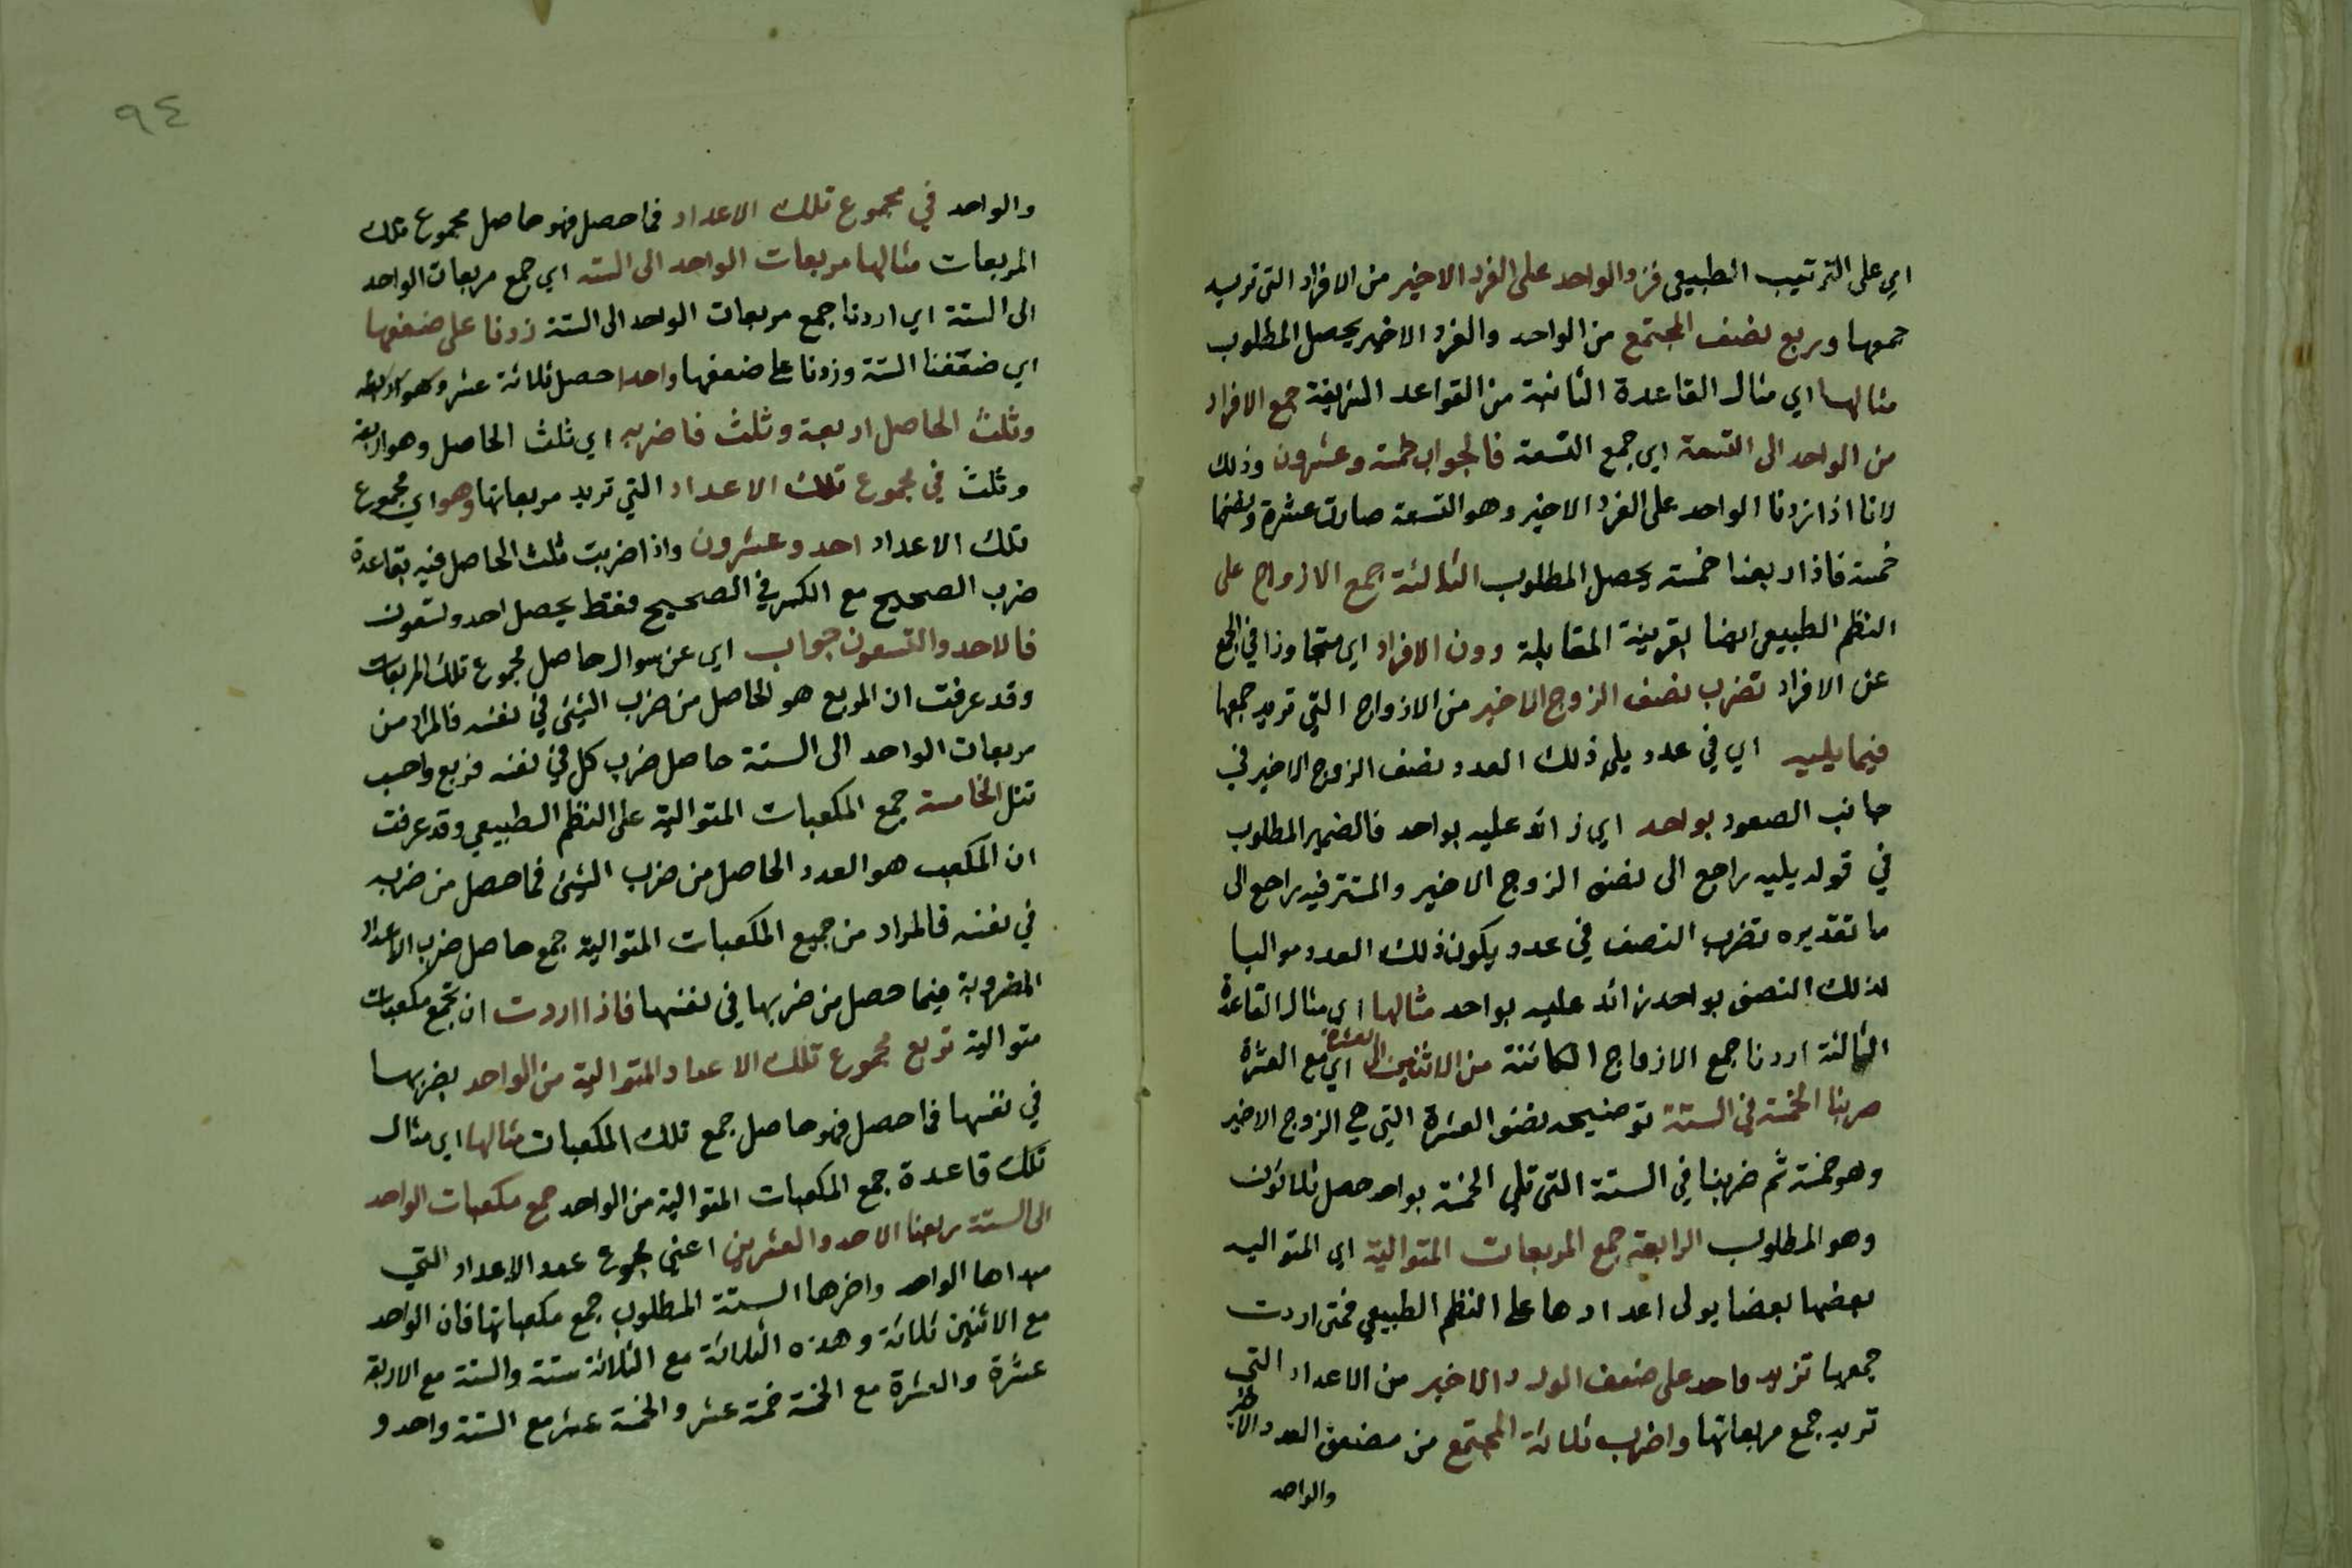 اي على الترتيب الطبيعي فزد الواحد على الفرد الاخير من الافراد التي تريد
جمعها وربع نصف المجتمع من الواحد والفرد الاخير يحصل المطلوب
مثالها اي مثال القاعدة الثانية من القواعد الشريفة جمع الافراد
من الواحد الى التسعة اي جمع التسعة فالجواب خمسة وعشرون وذلك
لانا اذا زدنا الواحد على الفرد الاخير وهو التسعة صارت عشرة ونصفها
خمسة فاذا ربعنا خمسة يحصل المطلوب الثالثة جمع الازواج على
النظم الطبيعي ايضا بقرينة المقابلة دون الافراد اي متجاوزا في الجمع
عن الافراد تضرب نصف الزوج الاخير من الازواج التي تريد جمعها
فيما يليه اي في عدد يلي ذلك العدد نصف الزوج الاخير في
جانب الصعود بواحد اي زائد عليه بواحد فالضمير المطلوب
في قوله يليه راجع الى نصف الزوج الاخير والمستتر فيه راجع الى
ما تقديره تضرب النصف في عدد يكون ذلك العدد مواليا
لذلك النصف بواحد زائد عليه بواحد مثالها اي مثال القاعدة
الثالثة اردنا جمع الازواج الكائنة من الاثنين الى العشرة اي مع العشرة
ضربنا الخمسة في الستة توضيحه نصف العشرة التي هي الزوج الاخير
وهو خمسة ثم ضربنا في الستة التي تلي الخمسة بواحد حصل ثلاثون
وهو المطلوب الرابعة جمع المربعات المتوالية اي المتوالية
بعضها بعضا يولى اعدادها على النظم الطبيعي فمتى اردت
جمعها تزيد واحد على ضعف العدد الاخير من الاعداد التي
تريد جمع مربعاتها واضرب ثلث المجتمع من ضعف العدد الاخير
والواحد
٩٤
والواحد في مجموع تلك الاعداد فما حصل فهو حاصل مجموع تلك
المربعات مثالها مربعات الواحد الى الستة اي جمع مربعات الواحد
الى الستة اي اردنا جمع مربعات الواحد الى الستة زدنا على ضعفها
اي ضعّفنا الستة وزدنا على ضعفها واحدا حصل ثلاثة عشر وهو
وثلث الحاصل اربعة وثلث فاضربه اي ثلث الحاصل وهو اربعة
وثلث في مجموع تلك الاعداد التي تريد مربعاتها وهو اي مجموع
تلك الاعداد احد وعشرون واذا ضربت ثلث الحاصل فيه بقاعدة
ضرب الصحيح مع الكسر في الصحيح فقط يحصل احد وتسعون
فالاحد والتسعون جواب اي عن سوال حاصل مجموع تلك المربعات
وقد عرفت ان المربع هو الحاصل من ضرب الشيئ في نفسه فالمراد من
مربعات الواحد الى الستة حاصل ضرب كل في نفسه فربع واحسب
تنل الخامسة جمع المكعبات المتوالية على النظم الطبيعي وقد عرفت
ان المكعب هو العدد الحاصل من ضرب الشيئ فما حصل من ضربه
في نفسه فالمراد من جميع المكعبات المتوالية جمع حاصل ضرب الاعداد
المضروبة فيما حصل من ضربها في نفسها فاذا اردت ان تجمع مكعبات
متوالية تربع مجموع تلك الاعداد المتوالية من الواحد بضربها
في نفسها فما حصل فهو حاصل جمع تلك المكعبات مثالها اي مثال
تلك قاعدة جمع المكعبات المتوالية من الواحد جمع مكعبات الواحد
الى الستة ربعنا الاحد والعشرين اعني مجموع عدد الاعداد التي
مبداها الواحد واخرها الستة المطلوب جمع مكعباتها فان الواحد
مع الاثنين ثلاثة وهذه الثلاثة مع الثلاثة ستة والستة مع الاربعة
عشرة والعشرة مع الخمسة خمسة عشر والخمسة عشر مع الستة واحد و